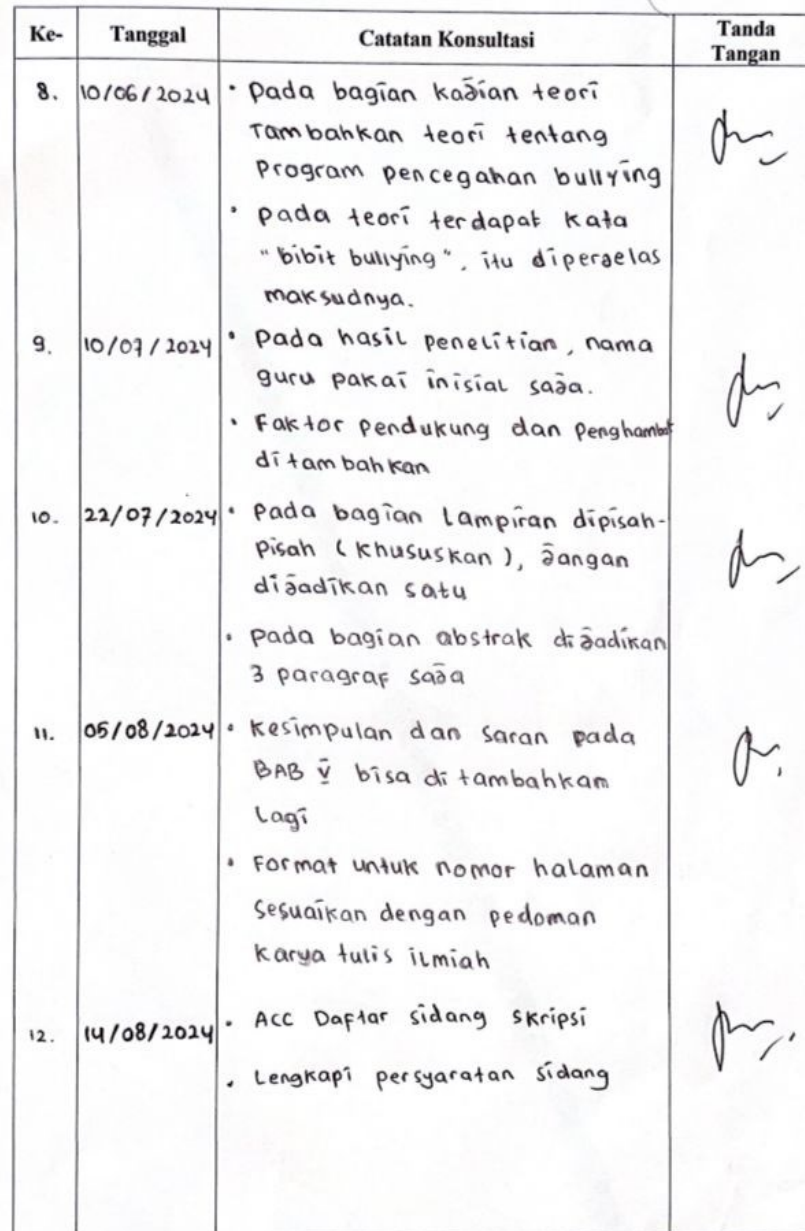 Ke- Tanggal Catatan Konsultasi Tanda Tangan
8. 10/06/2024 • pada bagian kajian teori
Tambahkan teori tentang
Program pencegahan bullying
• pada teori terdapat kata
"bibit bullying", itu diperjelas
maksudnya.
9. 10/07/2024 • pada hasil penelitian, nama
guru pakai inisial saja.
• Faktor pendukung dan Penghambat
ditambahkan
10. 22/07/2024 • pada bagian lampiran dipisah-
pisah (khususkan), jangan
dijadikan satu
• pada bagian abstrak dijadikan
3 paragraf saja
11. 05/08/2024 • Kesimpulan dan saran pada
BAB V bisa ditambahkan
lagi
• Format untuk nomor halaman
sesuaikan dengan pedoman
karya tulis ilmiah
12. 14/08/2024 • ACC Daftar sidang skripsi
• Lengkapi persyaratan sidang